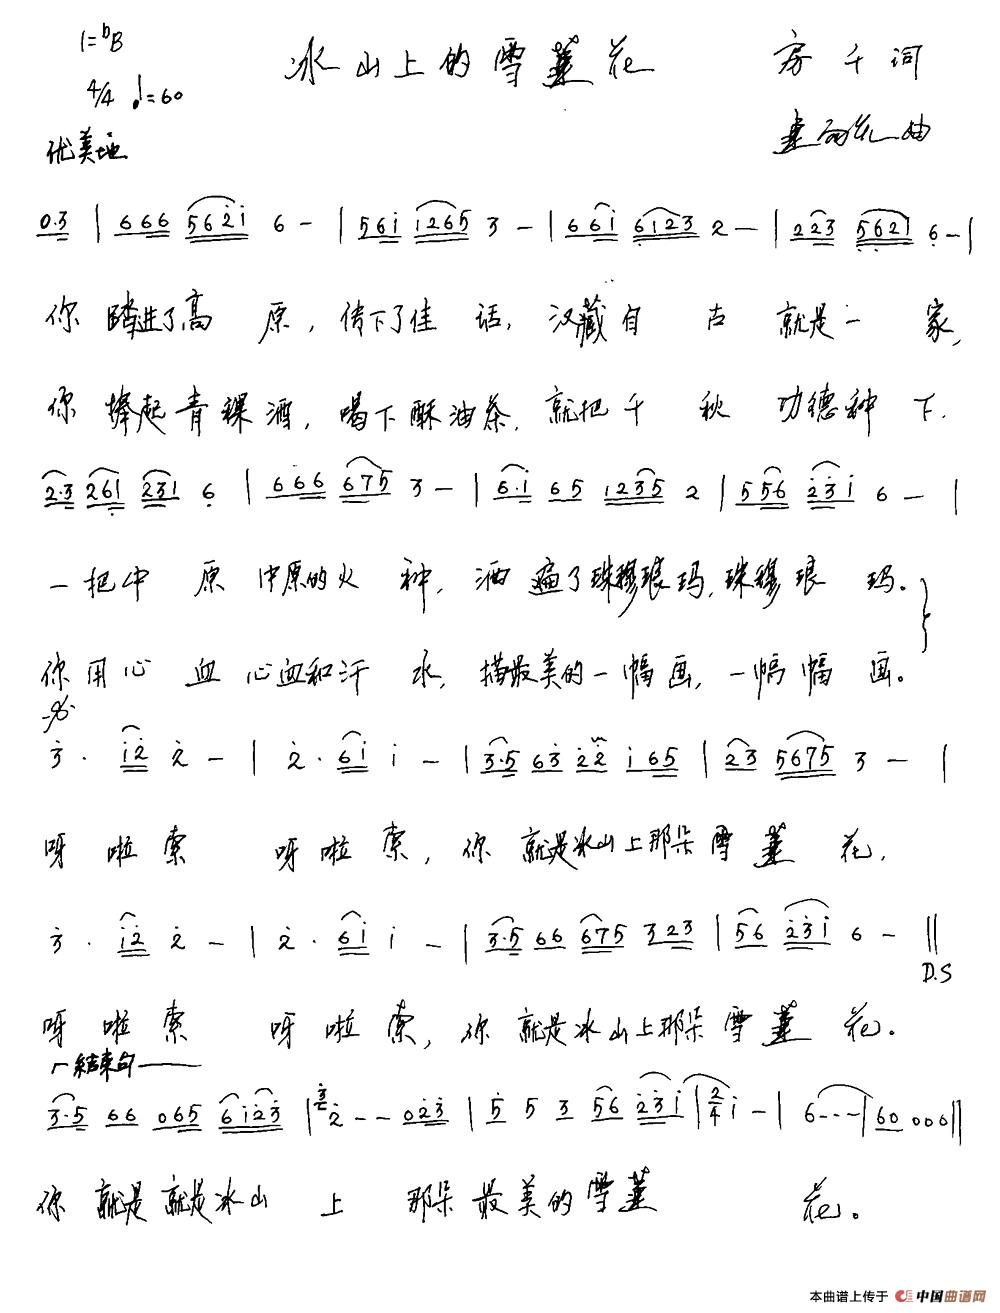 1=ᵇB
冰山上的雪莲花
房千词
4/4 ♩=60
曲
优美地
0.3 | 666 562̇1̇ 6 - | 561̇ 1̇265 3 - | 661̇ 6123 2 - | 223 5̣6̣21 6̣ - |
你踏进了高原,传下了佳话,汉藏自古就是一家,
你捧起青稞酒,喝下酥油茶,就把千秋功德种下.
2.3 26̣1 231 6̣ | 666 675 3 - | 6.1̇ 65 1235 2 | 556 2̇3̇1̇ 6 - |
一把中原中原的火种,洒遍了珠穆琅玛,珠穆琅玛。
你用心血心血和汗水,描最美的一幅画,一幅幅画。
3̇. 1̇2̇ 2̇ - | 2̇. 61̇ 1̇ - | 3.5 63 2̇2̇ 1̇65 | 23 5675 3 - |
呀啦索 呀啦索,你就是冰山上那朵雪莲花,
3̇. 1̇2̇ 2̇ - | 2̇. 61̇ 1̇ - | 3.5 66 675 323 | 56 2̇3̇1̇ 6 - ||
D.S
呀啦索 呀啦索,你就是冰山上那朵雪莲花。
结束句
3.5 66 065 61̇2̇3̇ | 3̇ 2̇ - - 02̇3̇ | 5̇ 5 3 56 2̇3̇1̇ | 2/4 1̇ - | 6 - - - | 60 000 ||
你就是就是冰山上那朵最美的雪莲花。
本曲谱上传于 中国曲谱网